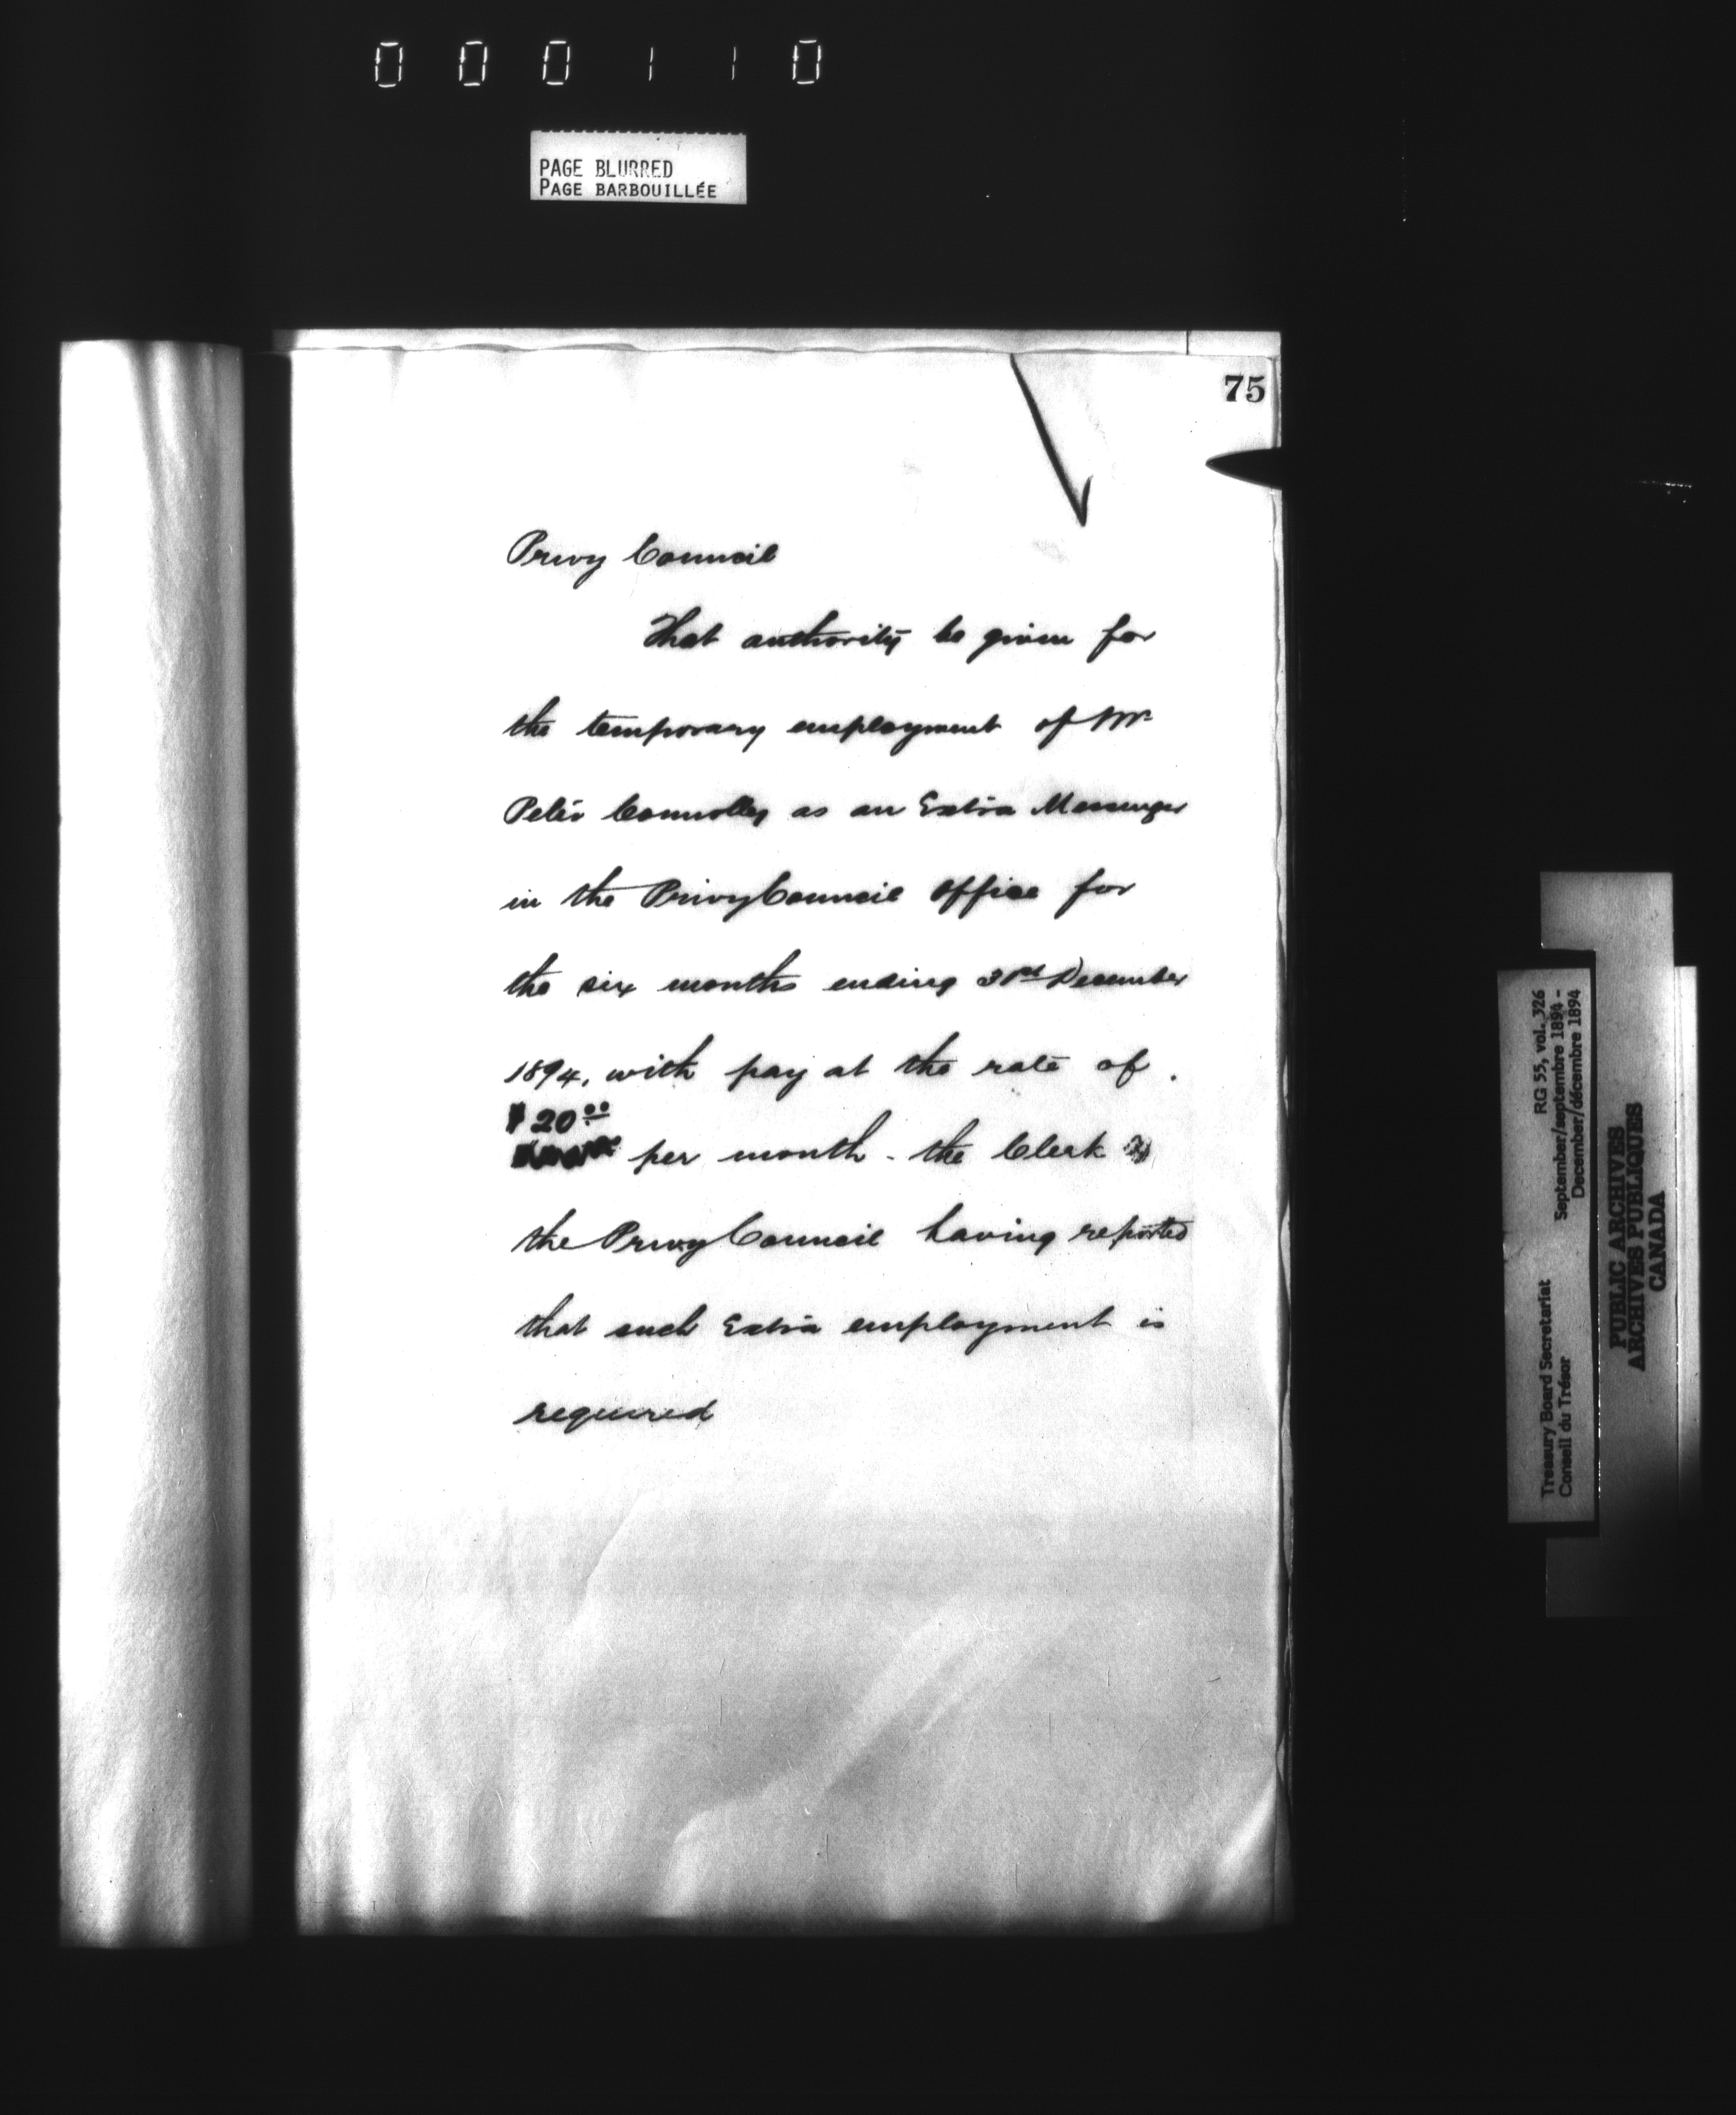 000110
PAGE BLURRED
PAGE BARBOUILLÉE
75
Privy Council
That authority be given for
the temporary employment of Mr
Peter Connolley as an Extra Messenger
in the Privy Council Office for
the six months ending 31st December
1894, with pay at the rate of
$20.00
per month - the Clerk
the Privy Council having reported
that such Extra employment is
required
RG 55, vol. 326
September/septembre 1894 -
December/décembre 1894
Treasury Board Secretariat
Conseil du Trésor
PUBLIC ARCHIVES
ARCHIVES PUBLIQUES
CANADA